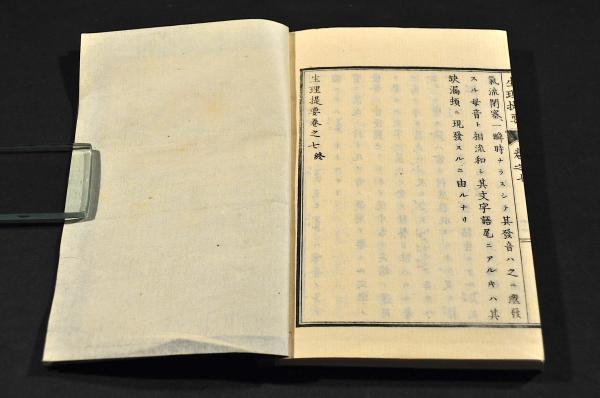 生理提要 卷之七
氣流閉塞一瞬時ナラスシテ其發音ハ之ヲ發
スル母音ト相流和ト其文字語尾ニアルキハ其
缺漏頻ニ現發スルニ由ルナリ
生理提要卷之七終